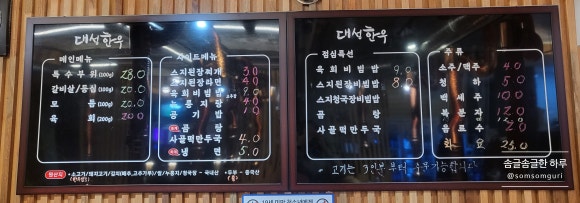 대성한우
메인메뉴
특수부위 (100g) 28.0
갈비살/등심 (100g) 20.0
모듬 (100g) 20.0
육회 (100g) 20.0
사이드메뉴
스지된장찌개 3.0
스지된장라면 4.0
육회비빔밥 9.0
누룽지탕 4.0
공기밥 1.0
곰탕
사골떡만두국 4.0
냉면 5.0
원산지 •소고기/돼지고기/김치(배추,고추가루)/쌀/누룽지/청국장 - 국내산 •두부 - 중국산
대성한우
점심특선
육회비빔밥 9.0
스지된장비빔밥 8.0
스지청국장비빔밥
곰탕
사골떡만두국
주류
소주/맥주
청하 5.0
백세주
복분자
음료수
화요
•고기는 3인분부터
송글송글한 하루
@somsomguri